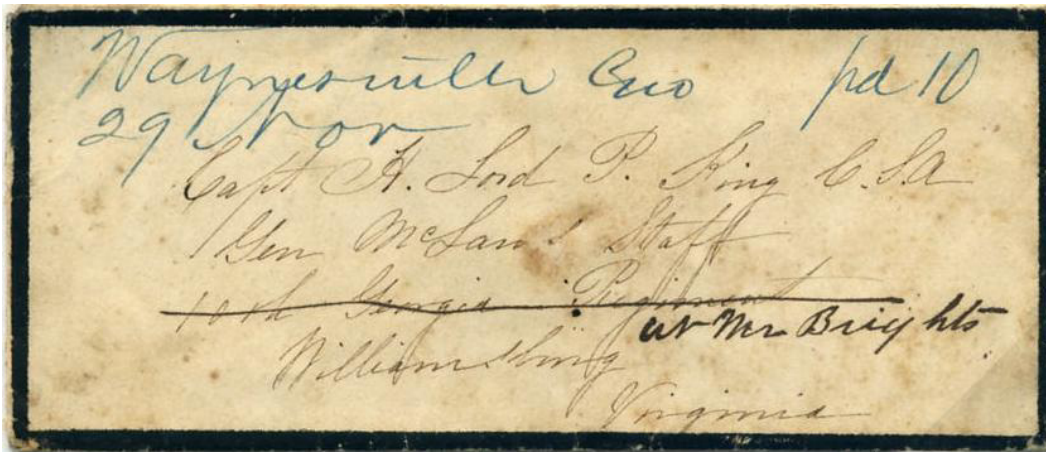 Waynesville Geo pd 10
29 Nov
Capt H. Lord P. King C.S.A
Gen McLaws Staff
10th Georgia Regiment
at Mr Brights
Williamsburg
Virginia